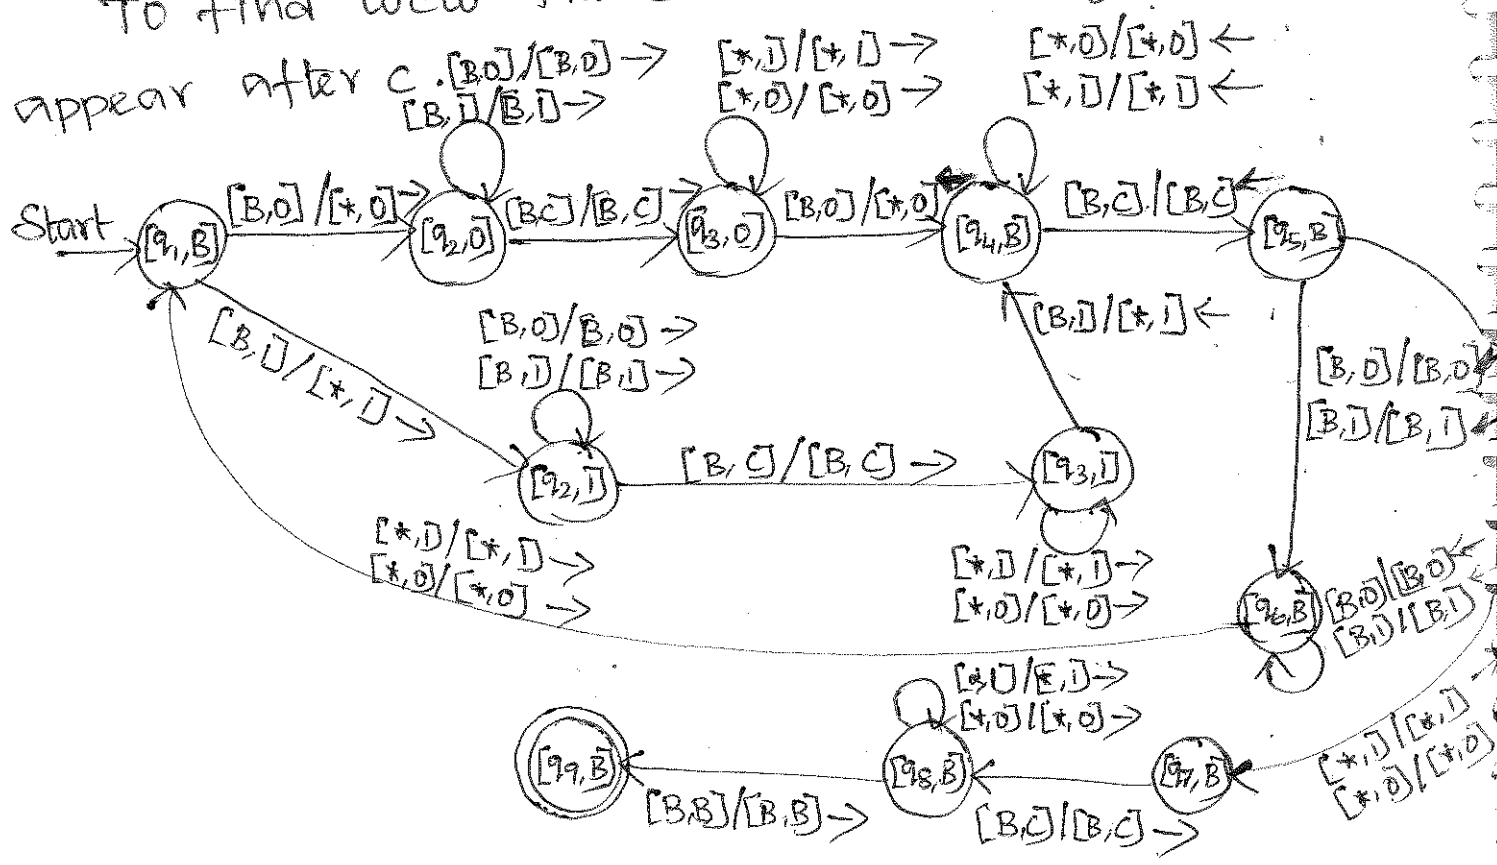 To find
appear after c.
[B,0]/[B,0] →
[B,1]/[B,1] →
[*,1]/[*,1] →
[*,0]/[*,0] →
[*,0]/[*,0] ←
[*,1]/[*,1] ←
Start
[q1,B]
[B,0]/[*,0] →
[q2,0]
[B,C]/[B,C] →
[q3,0]
[B,0]/[*,0] ←
[q4,B]
[B,C]/[B,C] ←
[q5,B]
[B,1]/[*,1] →
[B,0]/[B,0] →
[B,1]/[B,1] →
[B,1]/[*,1] ←
[B,0]/[B,0]
[B,1]/[B,1]
[q2,1]
[B,C]/[B,C] →
[q3,1]
[*,1]/[*,1] →
[*,0]/[*,0] →
[*,1]/[*,1] →
[*,0]/[*,0] →
[q6,B]
[B,0]/[B,0] ←
[B,1]/[B,1] ←
[*,0]/[*,0] →
[*,1]/[*,1] →
[*,0]/[*,0]
[q9,B]
[q8,B]
[q7,B]
[B,B]/[B,B] →
[B,C]/[B,C] →